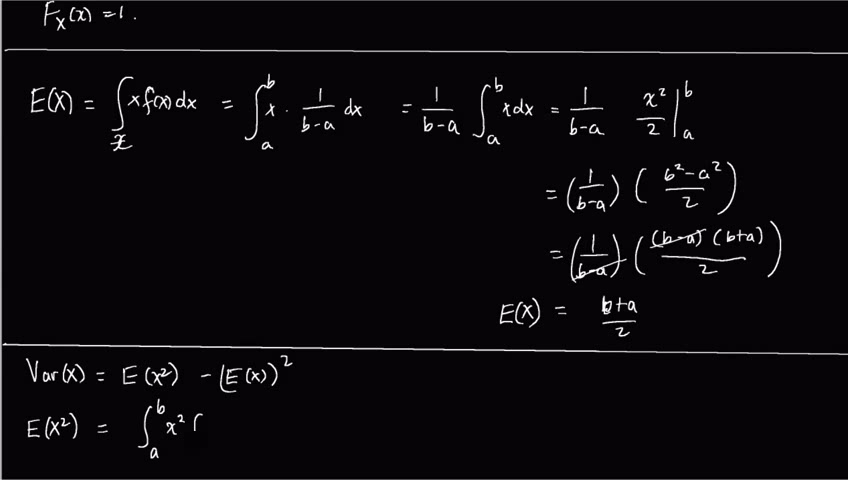 F_X(x) = 1.
E(X) = ∫_𝒳 x f(x) dx = ∫_a^b x · 1/(b-a) dx = 1/(b-a) ∫_a^b x dx = 1/(b-a) x²/2 |_a^b
= (1/(b-a)) ((b²-a²)/2)
= (1/(b-a)) ((b-a)(b+a)/2)
E(X) = (b+a)/2
Var(X) = E(X²) - (E(X))²
E(X²) = ∫_a^b x² (